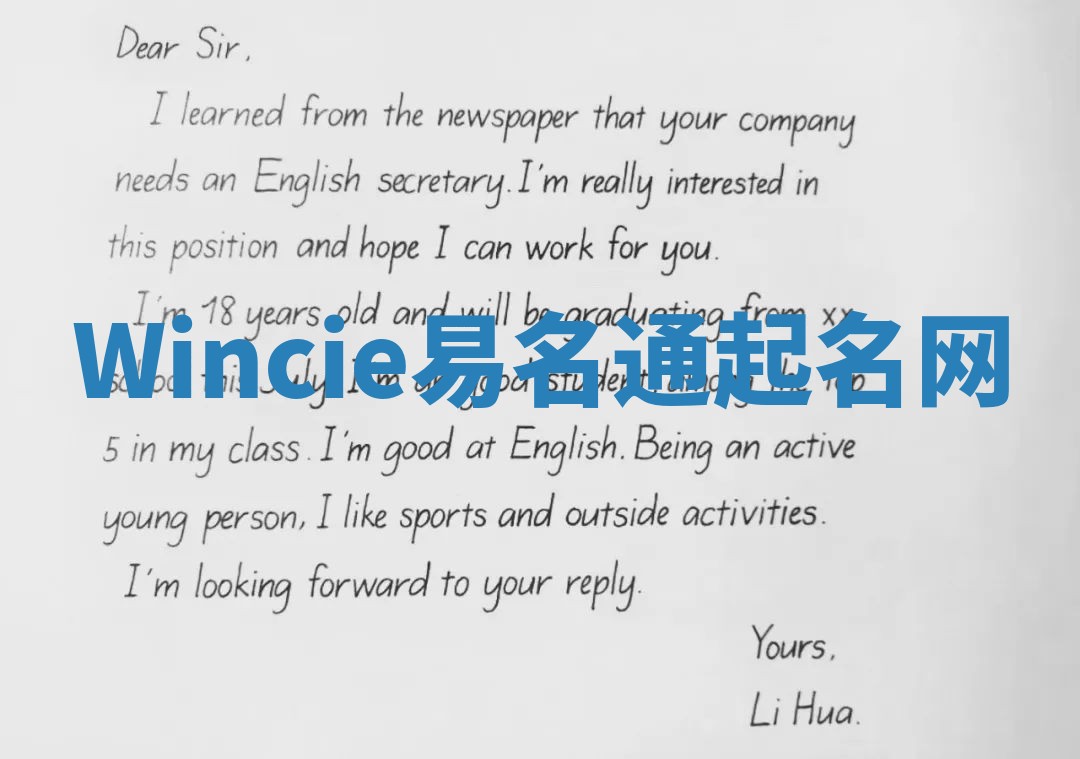 Dear Sir,
I learned from the newspaper that your company
needs an English secretary. I'm really interested in
this position and hope I can work for you.
I'm 18 years old and will be graduating from xx
Wincie易名通起名网
school this July. I'm a good student, among the top
5 in my class. I'm good at English. Being an active
young person, I like sports and outside activities.
I'm looking forward to your reply.
Yours,
Li Hua.